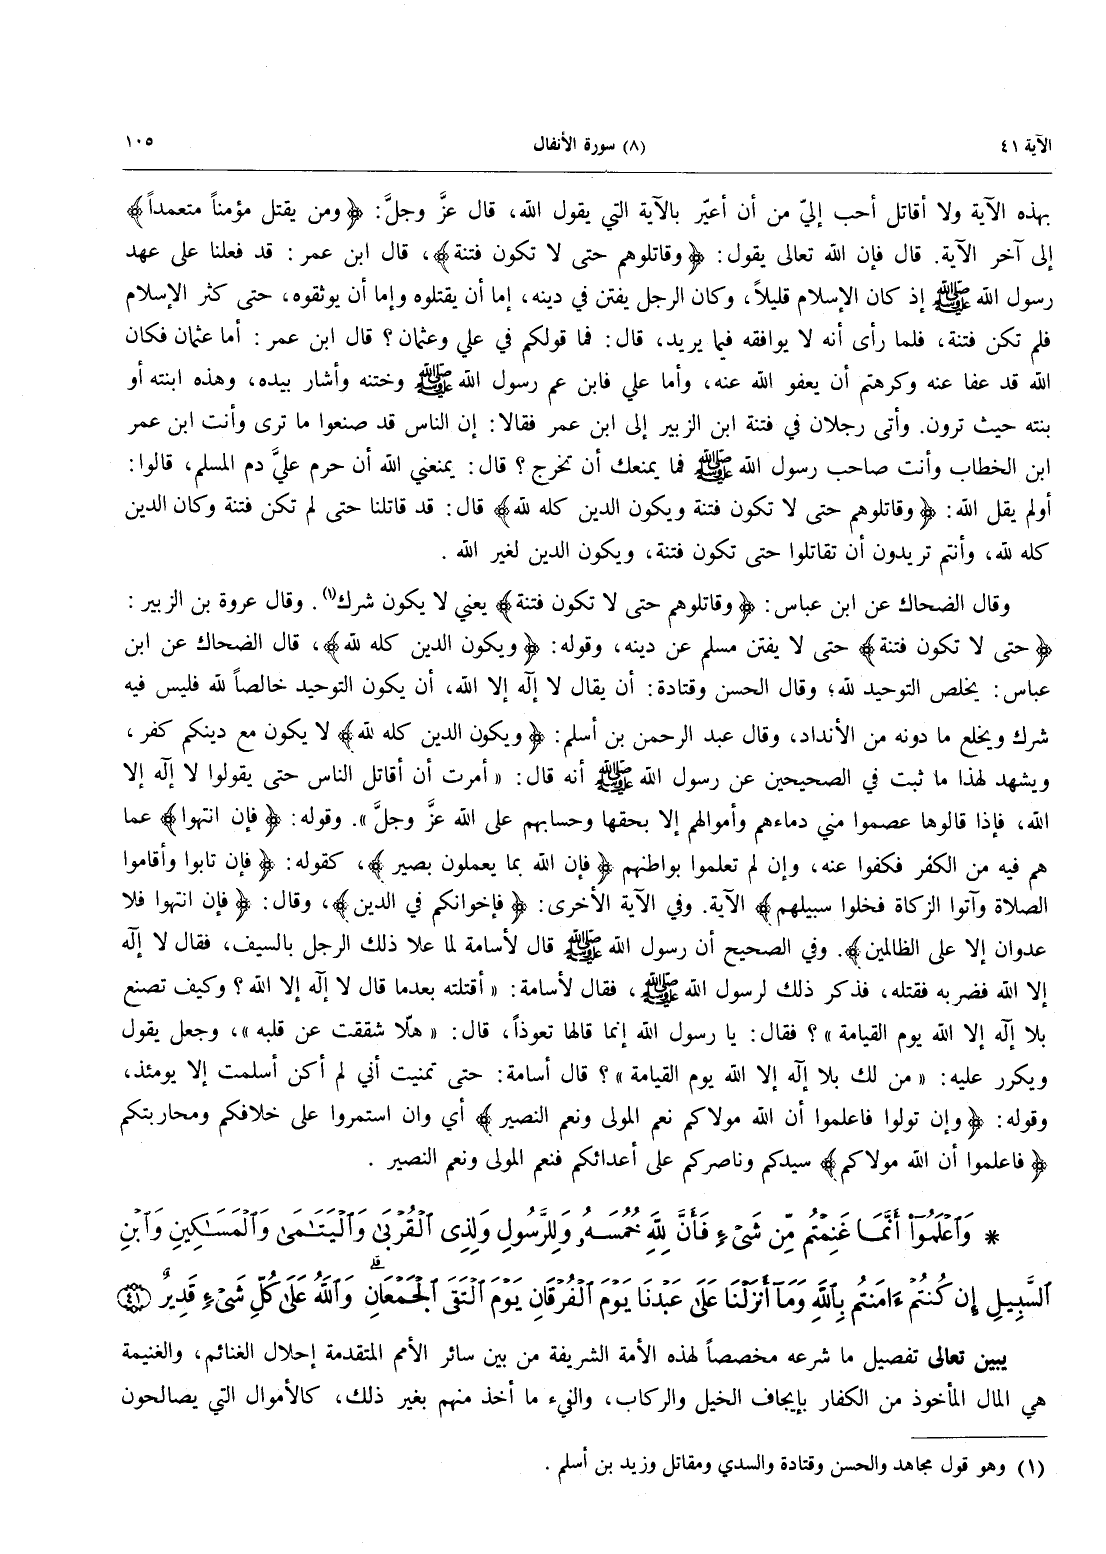 الآية ٤١ (٨) سورة الأنفال ١٠٥
بهذه الآية ولا أقاتل أحب إليّ من أن أعيّر بالآية التي يقول الله، قال عزَّ وجلَّ: ﴿ومن يقتل مؤمناً متعمداً﴾
إلى آخر الآية. قال فإن الله تعالى يقول: ﴿وقاتلوهم حتى لا تكون فتنة﴾، قال ابن عمر: قد فعلنا على عهد
رسول الله ﷺ إذ كان الإسلام قليلاً، وكان الرجل يفتن في دينه، إما أن يقتلوه وإما أن يوثقوه، حتى كثر الإسلام
فلم تكن فتنة، فلما رأى أنه لا يوافقه فيما يريد، قال: فما قولكم في علي وعثمان؟ قال ابن عمر: أما عثمان فكان
الله قد عفا عنه وكرهتم أن يعفو الله عنه، وأما علي فابن عم رسول الله ﷺ وختنه وأشار بيده، وهذه ابنته أو
بنته حيث ترون. وأتى رجلان في فتنة ابن الزبير إلى ابن عمر فقالا: إن الناس قد صنعوا ما ترى وأنت ابن عمر
ابن الخطاب وأنت صاحب رسول الله ﷺ فما يمنعك أن تخرج؟ قال: يمنعني الله أن حرم عليَّ دم المسلم، قالوا:
أولم يقل الله: ﴿وقاتلوهم حتى لا تكون فتنة ويكون الدين كله لله﴾ قال: قد قاتلنا حتى لم تكن فتنة وكان الدين
كله لله، وأنتم تريدون أن تقاتلوا حتى تكون فتنة، ويكون الدين لغير الله.
وقال الضحاك عن ابن عباس: ﴿وقاتلوهم حتى لا تكون فتنة﴾ يعني لا يكون شرك(١). وقال عروة بن الزبير:
﴿حتى لا تكون فتنة﴾ حتى لا يفتن مسلم عن دينه، وقوله: ﴿ويكون الدين كله لله﴾، قال الضحاك عن ابن
عباس: يخلص التوحيد لله؛ وقال الحسن وقتادة: أن يقال لا إلٰه إلا الله، أن يكون التوحيد خالصاً لله فليس فيه
شرك ويخلع ما دونه من الأنداد، وقال عبد الرحمن بن أسلم: ﴿ويكون الدين كله لله﴾ لا يكون مع دينكم كفر،
ويشهد لهذا ما ثبت في الصحيحين عن رسول الله ﷺ أنه قال: «أمرت أن أقاتل الناس حتى يقولوا لا إلٰه إلا
الله، فإذا قالوها عصموا مني دماءهم وأموالهم إلا بحقها وحسابهم على الله عزَّ وجلَّ». وقوله: ﴿فإن انتهوا﴾ عما
هم فيه من الكفر فكفوا عنه، وإن لم تعلموا بواطنهم ﴿فإن الله بما يعملون بصير﴾، كقوله: ﴿فإن تابوا وأقاموا
الصلاة وآتوا الزكاة فخلوا سبيلهم﴾ الآية. وفي الآية الأخرى: ﴿فإخوانكم في الدين﴾، وقال: ﴿فإن انتهوا فلا
عدوان إلا على الظالمين﴾. وفي الصحيح أن رسول الله ﷺ قال لأسامة لما علا ذلك الرجل بالسيف، فقال لا إلٰه
إلا الله فضربه فقتله، فذكر ذلك لرسول الله ﷺ، فقال لأسامة: «أقتلته بعدما قال لا إلٰه إلا الله؟ وكيف تصنع
بلا إلٰه إلا الله يوم القيامة»؟ فقال: يا رسول الله إنما قالها تعوذاً، قال: «هلّا شققت عن قلبه»، وجعل يقول
ويكرر عليه: «من لك بلا إلٰه إلا الله يوم القيامة»؟ قال أسامة: حتى تمنيت أني لم أكن أسلمت إلا يومئذ،
وقوله: ﴿وإن تولوا فاعلموا أن الله مولاكم نعم المولى ونعم النصير﴾ أي وان استمروا على خلافكم ومحاربتكم
﴿فاعلموا أن الله مولاكم﴾ سيدكم وناصركم على أعدائكم فنعم المولى ونعم النصير.
* وَٱعۡلَمُوٓاْ أَنَّمَا غَنِمۡتُم مِّن شَيۡءٖ فَأَنَّ لِلَّهِ خُمُسَهُۥ وَلِلرَّسُولِ وَلِذِي ٱلۡقُرۡبَىٰ وَٱلۡيَتَٰمَىٰ وَٱلۡمَسَٰكِينِ وَٱبۡنِ
ٱلسَّبِيلِ إِن كُنتُمۡ ءَامَنتُم بِٱللَّهِ وَمَآ أَنزَلۡنَا عَلَىٰ عَبۡدِنَا يَوۡمَ ٱلۡفُرۡقَانِ يَوۡمَ ٱلۡتَقَى ٱلۡجَمۡعَانِۗ وَٱللَّهُ عَلَىٰ كُلِّ شَيۡءٖ قَدِيرٌ ﴿٤١﴾
يبين تعالى تفصيل ما شرعه مخصصاً لهذه الأمة الشريفة من بين سائر الأمم المتقدمة إحلال الغنائم، والغنيمة
هي المال المأخوذ من الكفار بإيجاف الخيل والركاب، والفيء ما أخذ منهم بغير ذلك، كالأموال التي يصالحون
(١) وهو قول مجاهد والحسن وقتادة والسدي ومقاتل وزيد بن أسلم.